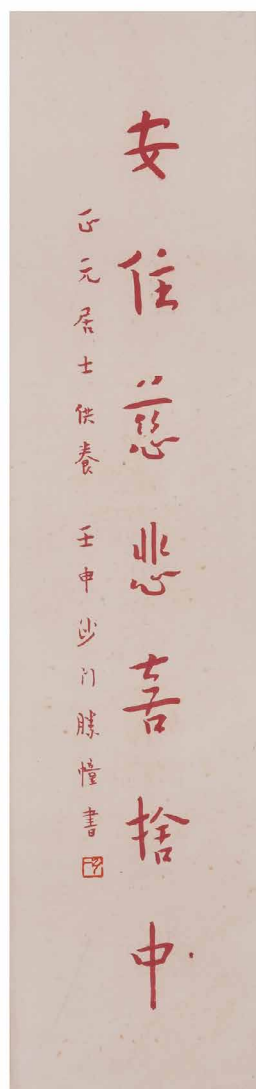 安住慈悲喜捨中
正元居士供養 壬申沙门勝幢書